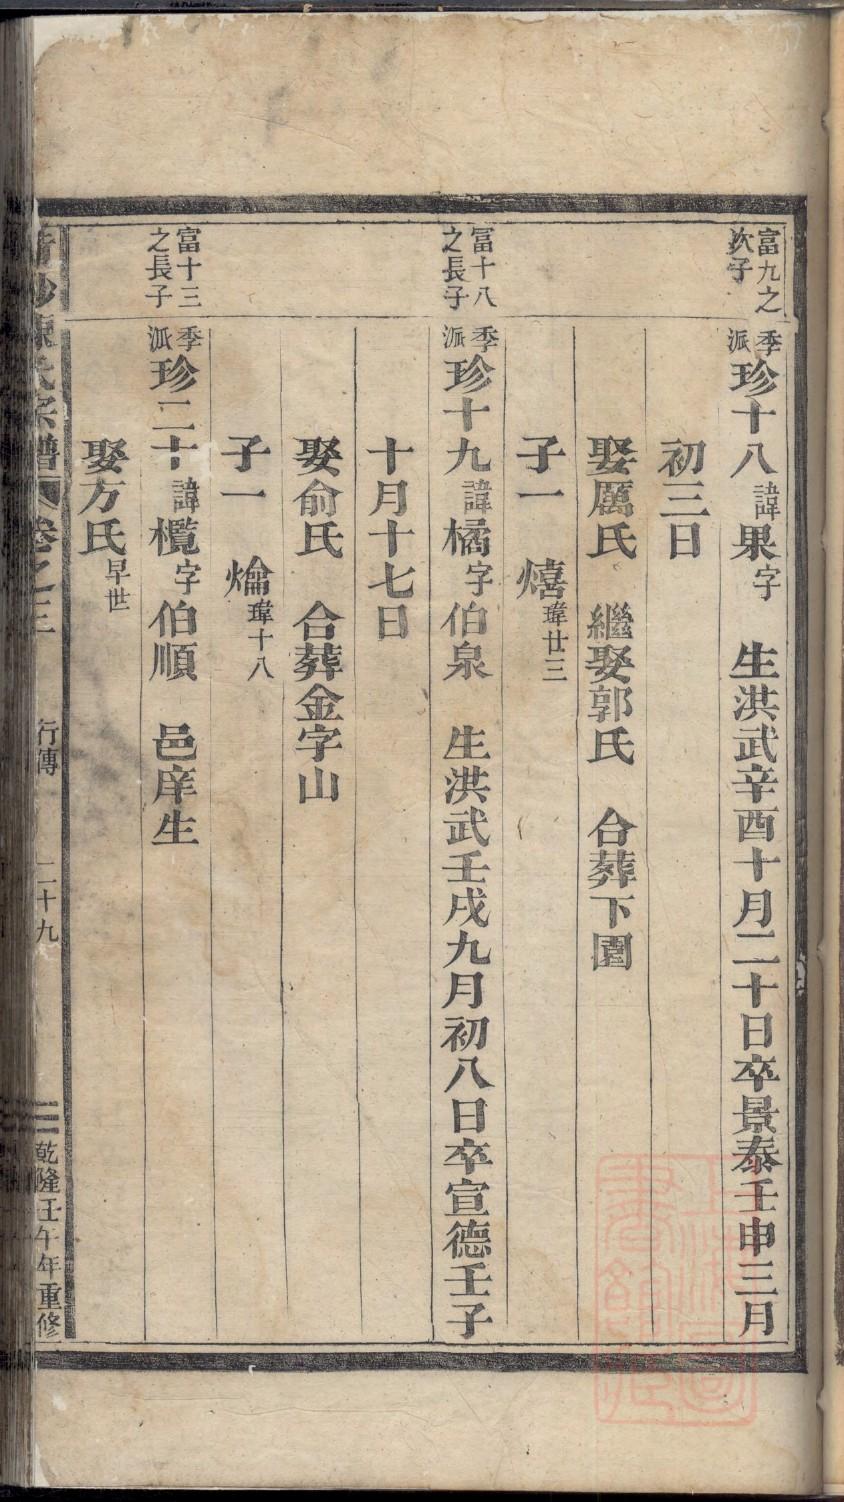 富九之
次子
季
派
珍十八諱果字　生洪武辛酉十月二十日卒景泰壬申三月
初三日
娶厲氏　繼娶郭氏　合葬下園
子一　熺瑋廿三
冨十八
之長子
季
派
珍十九諱橘字伯泉　生洪武壬戌九月初八日卒宣德壬子
十月十七日
娶俞氏　合葬金字山
子一　㷍瑋十八
富十三
之長子
季
派
珍二十諱欖字伯順　邑庠生
娶方氏早世
陳氏宗譜　卷之三　行傳　二十九　乾隆壬午年重修
上海圖
書館藏